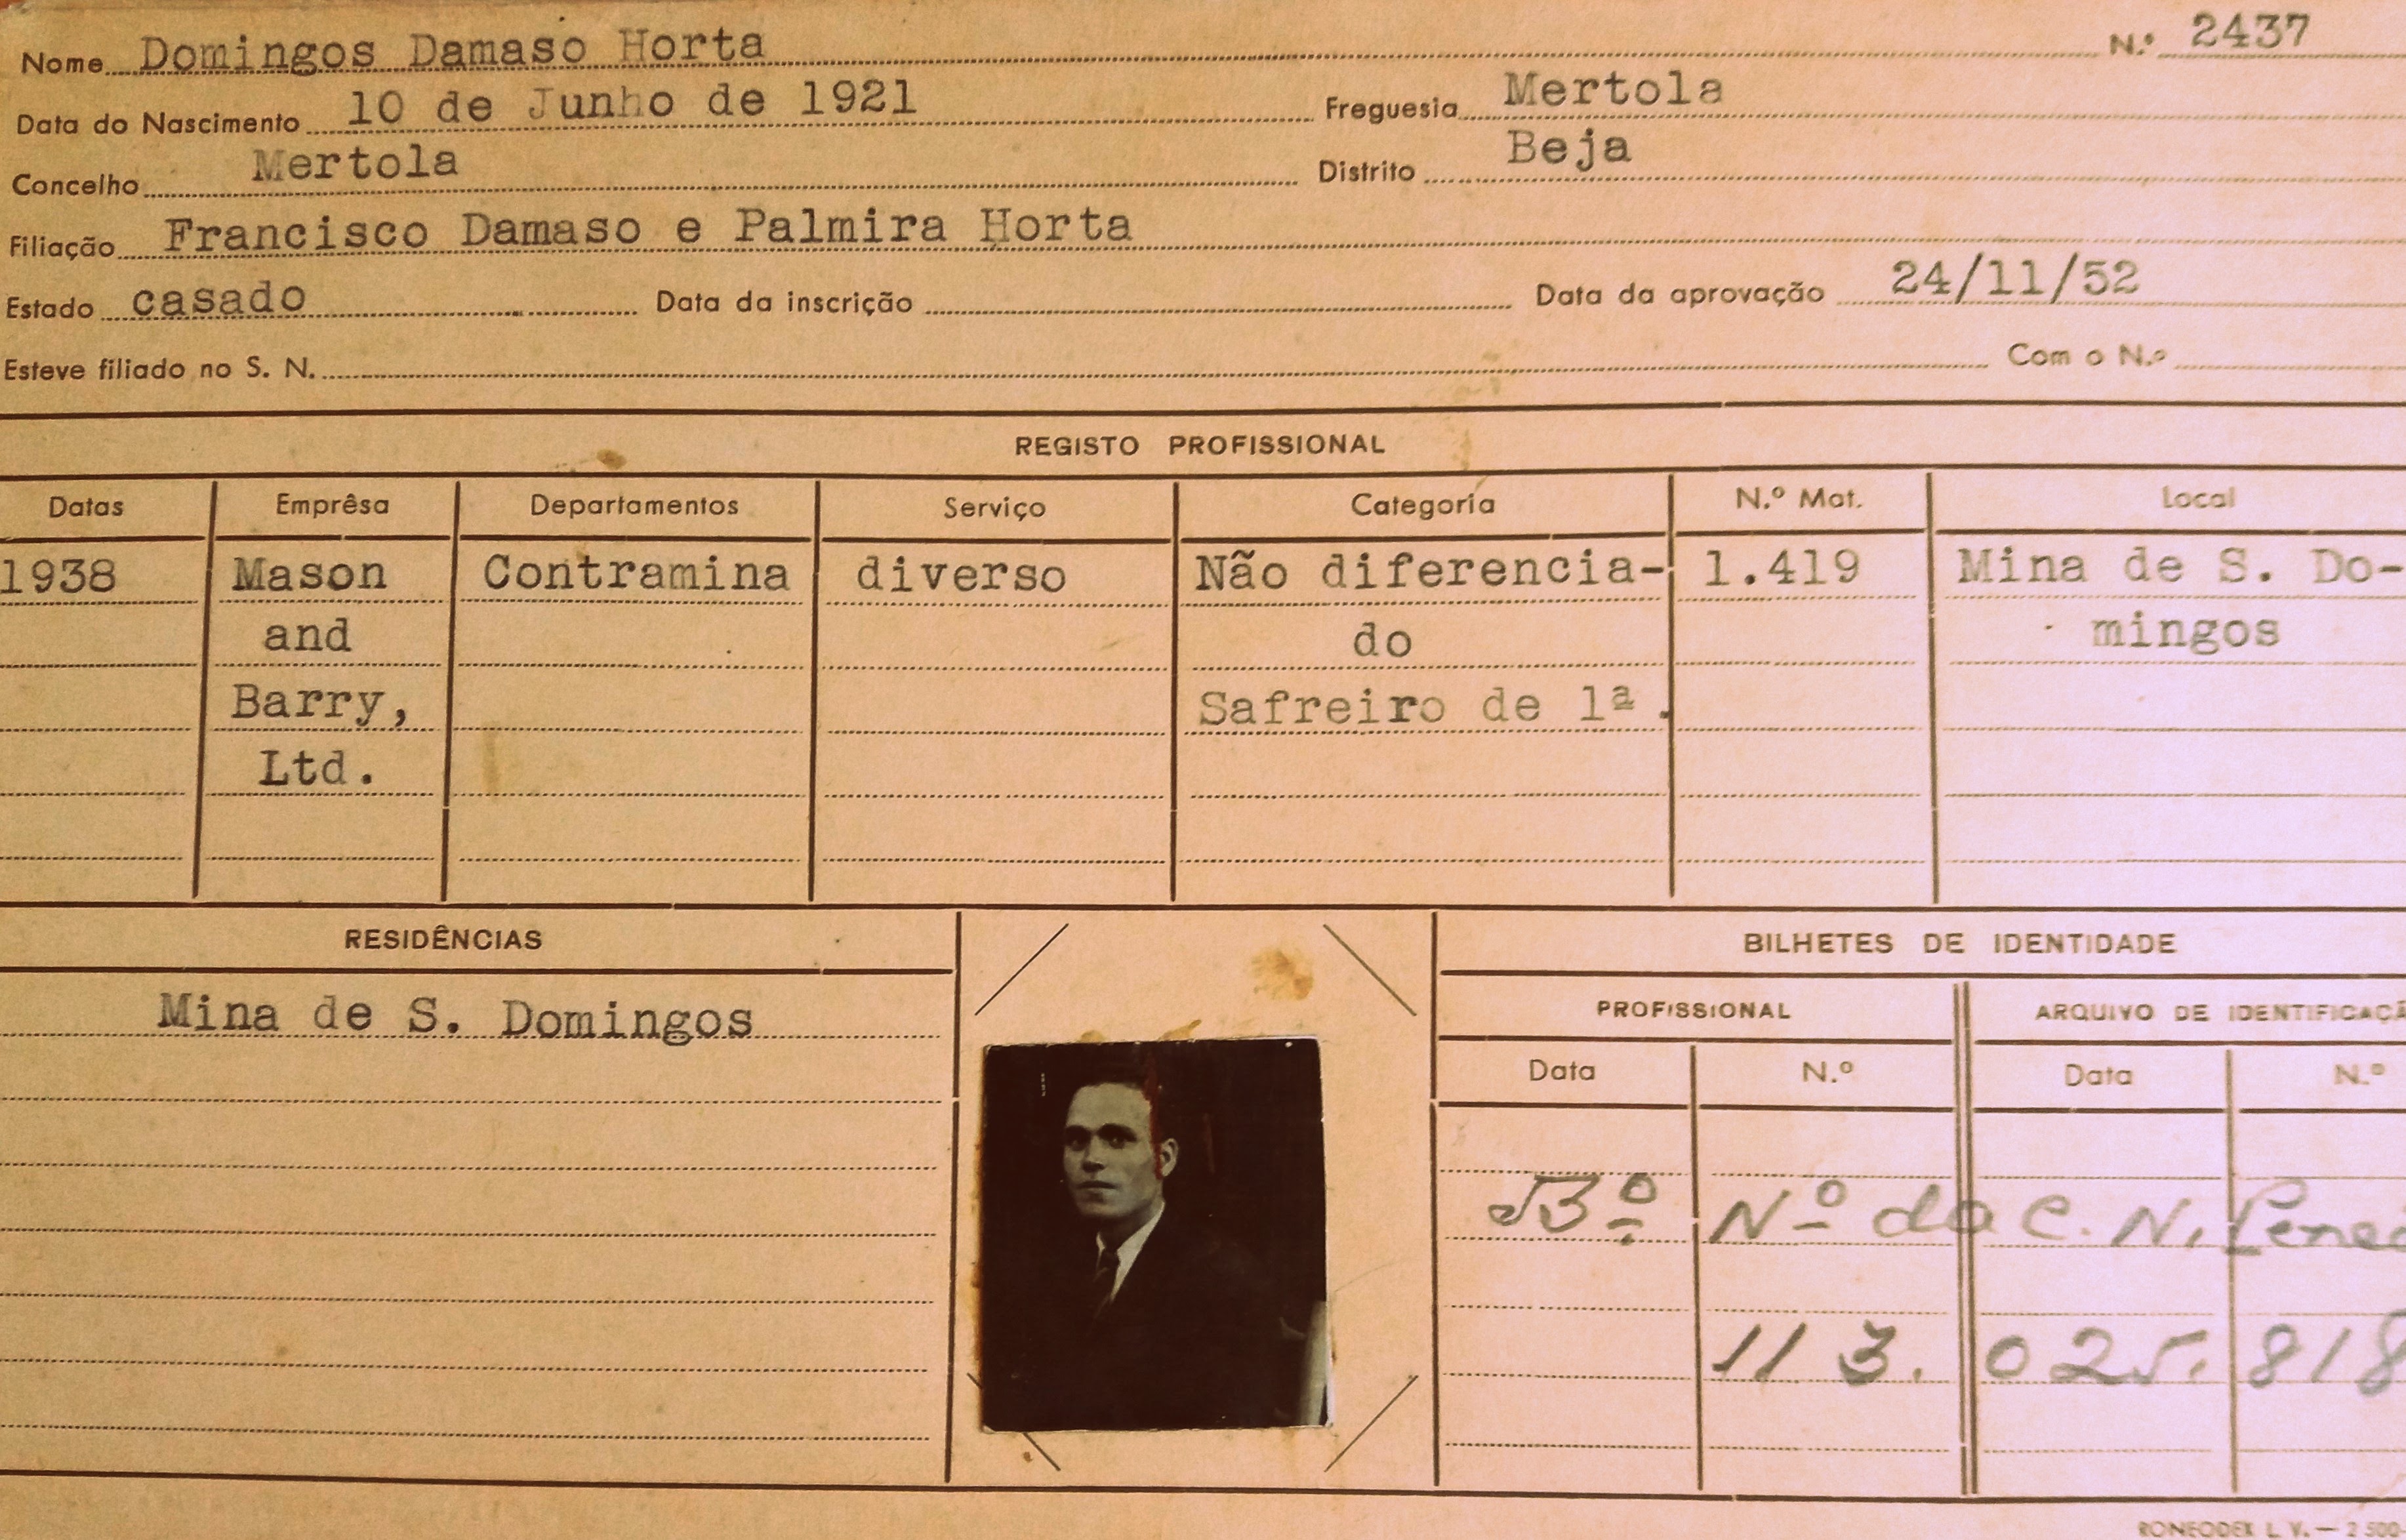 Nome Domingos Damaso Horta N.º 2437
Data do Nascimento 10 de Junho de 1921 Freguesia Mertola
Concelho Mertola Distrito Beja
Filiação Francisco Damaso e Palmira Horta
Estado casado Data da inscrição Data da aprovação 24/11/52
Esteve filiado no S. N. Com o N.º
REGISTO PROFISSIONAL
Datas Emprêsa Departamentos Serviço Categoria N.º Mat. Local
1938 Mason Contramina diverso Não diferencia- 1.419 Mina de S. Do-
and do mingos
Barry, Safreiro de 1ª.
Ltd.
RESIDÊNCIAS BILHETES DE IDENTIDADE
Mina de S. Domingos PROFISSIONAL ARQUIVO DE IDENTIFICAÇÃ
Data N.º Data N.º
Nº da C. N.
113. 025. 818
RONEODEX L. V. — 2 500